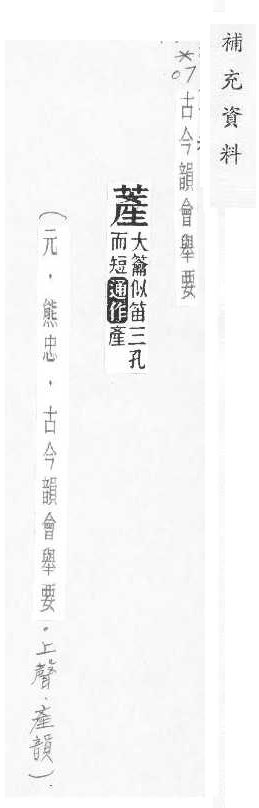 補充資料
*07 古今韻會舉要
大籥似笛三孔
而短通作產
（元，熊忠，古今韻會舉要。上聲．產韻）．